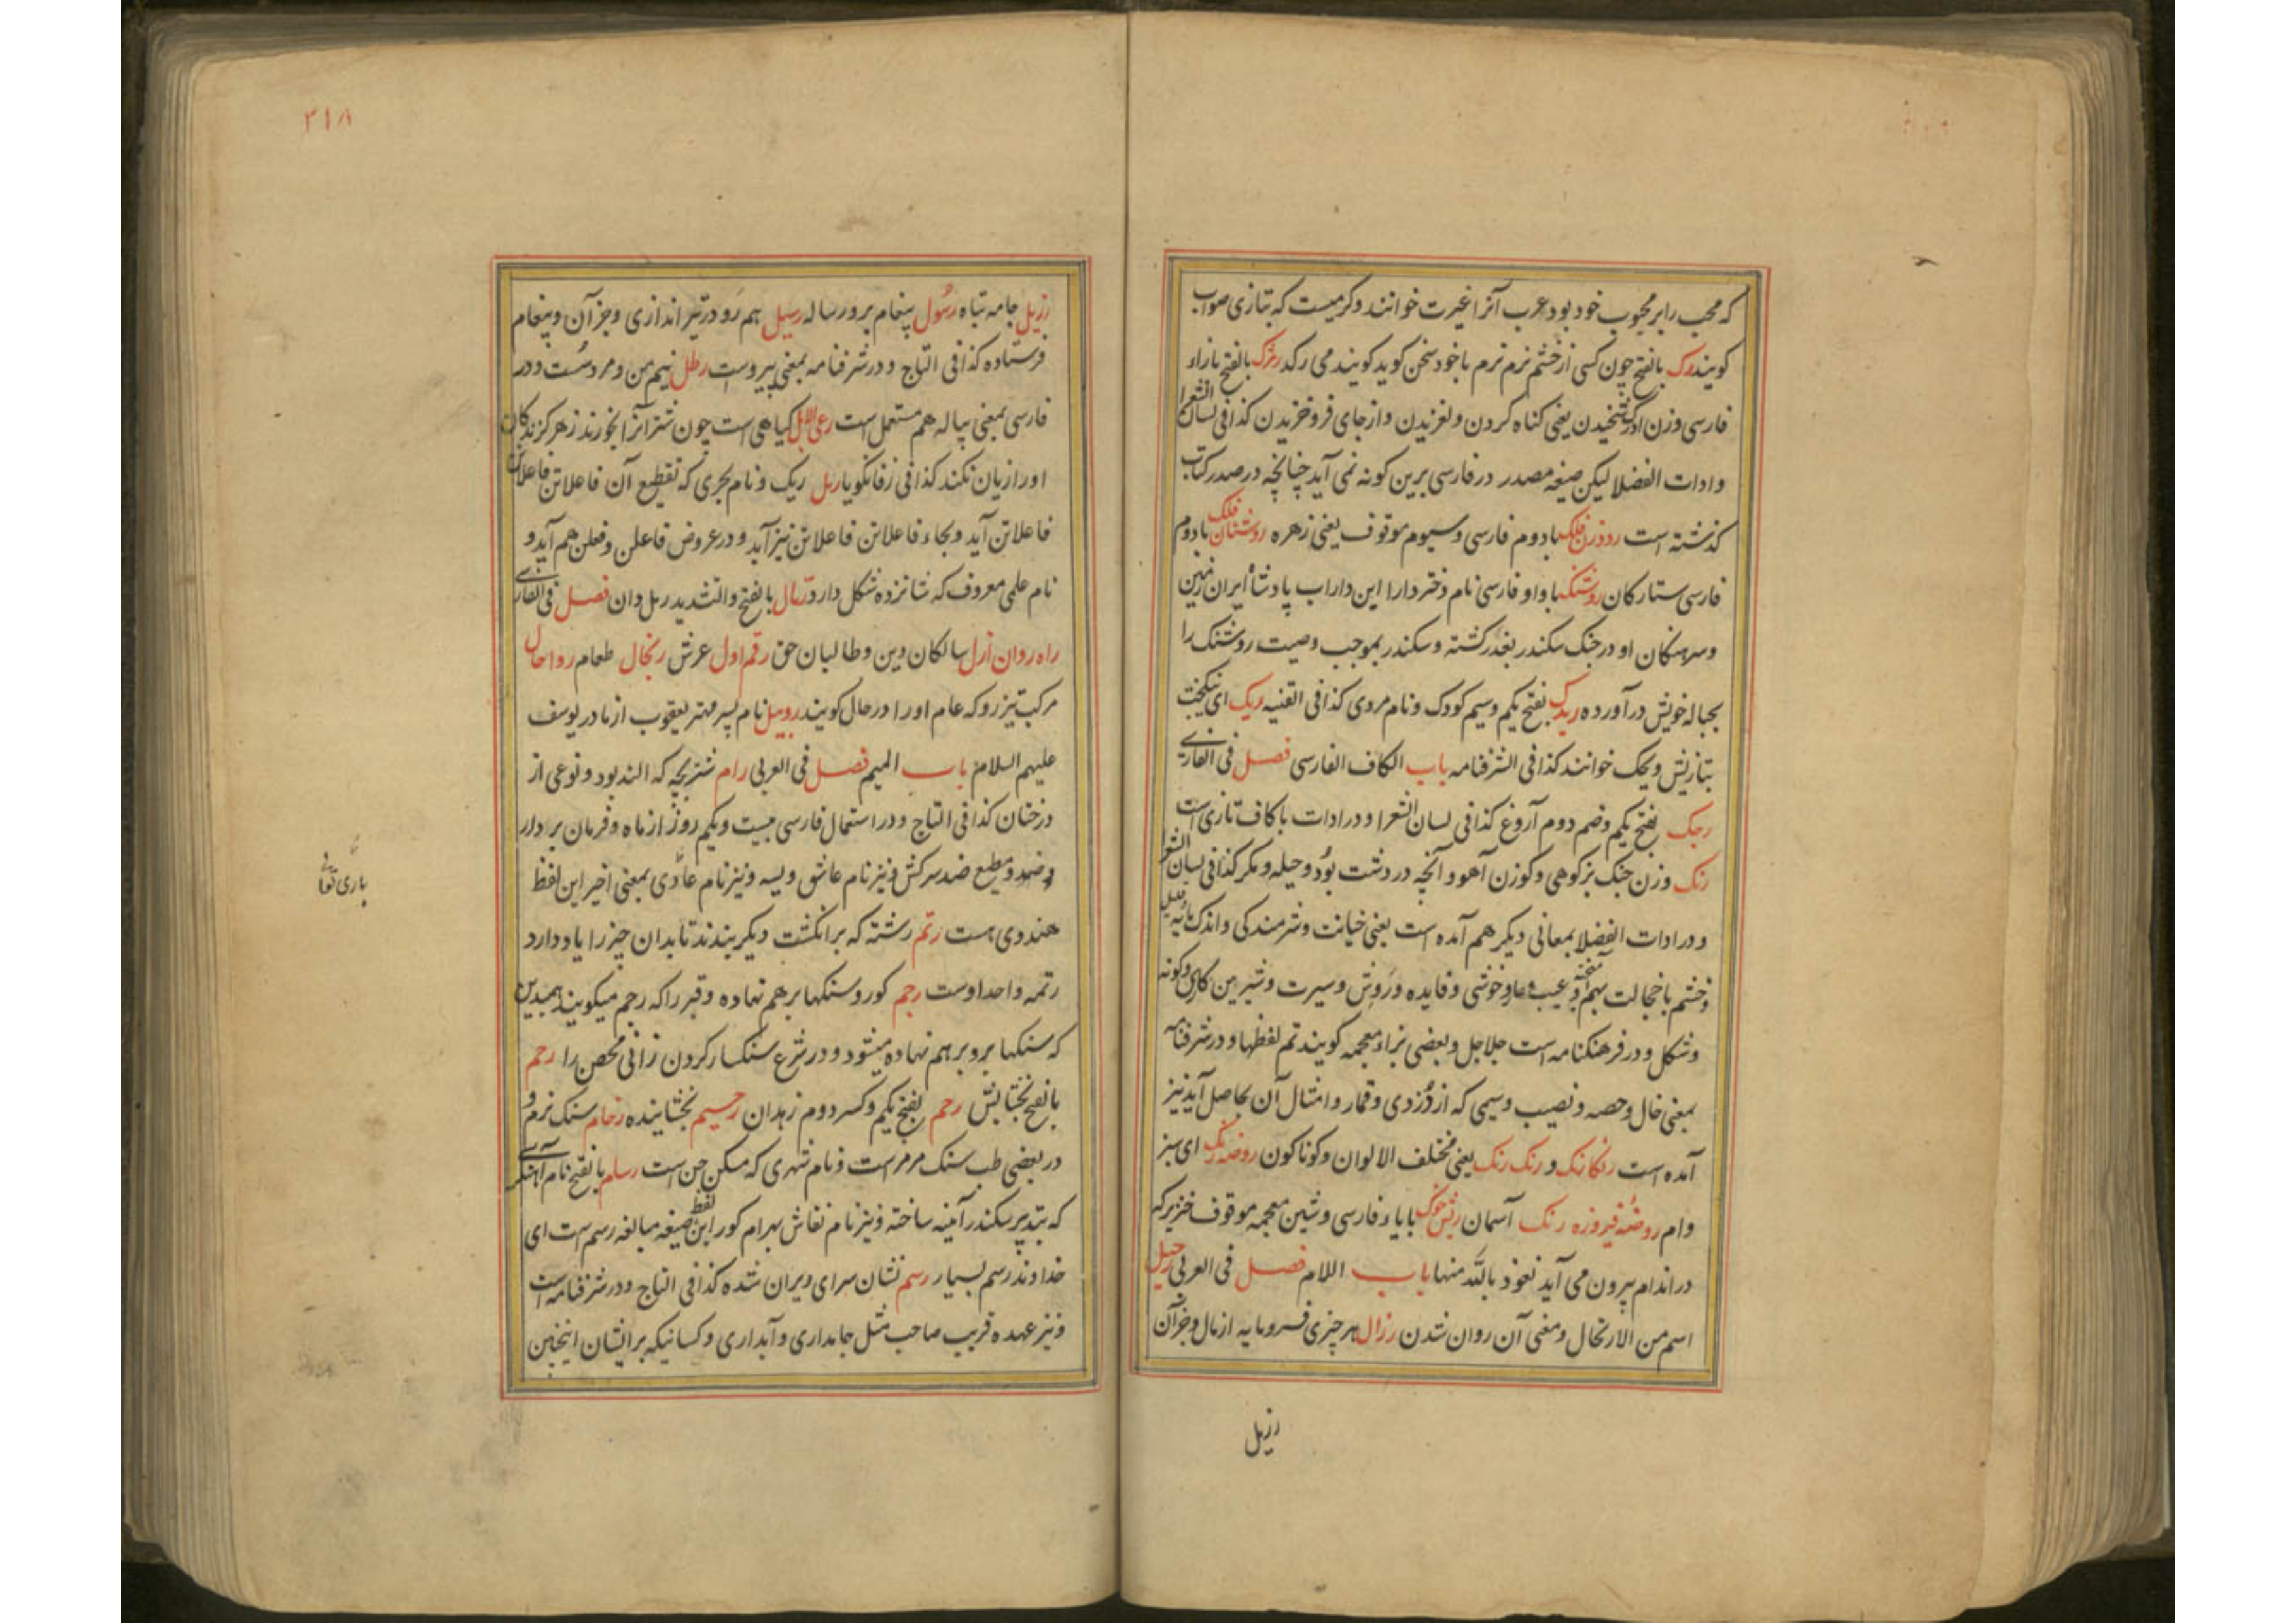 که محب را بر محبوب خود بود عرب آنرا غیرت خوانند و کرمیست که بتازی صواب
کویند رک بالفتح چون کسی از خشم نرم نرم با خود سخن کوید کویند می رکد رژک بالفتح با زاء
فارسی وزن اورک شخیدن یعنی کناه کردن و لغزیدن و از جای فرو خزیدن کذا فی لسان الشعرا
و ادات الفضلا لیکن صیغه مصدر در فارسی برین کونه نمی آید چنانچه در صدر کتاب
کذشته است روزن فلک با دوم فارسی و سیوم موقوف یعنی زهره روشنان فلک با دوم
فارسی ستارکان روشنک با واو فارسی نام دختر دارا ابن داراب پادشاه ایران زمین
و سرهنکان او در جنک سکندر بغدر کشته و سکندر بموجب وصیت روشنک را
بحباله خویش در آورده ریدک بفتح یکم و سیم کودک و نام مردی کذا فی القنیه ریک ای نیکبخت
بتازیش ویحک خوانند کذا فی الشرفنامه باب الکاف الفارسی فصل فی الفارسی
رجک بفتح یکم و ضم دوم آروغ کذا فی لسان الشعرا و در ادات با کاف تازی است
رنک وزن جنک بز کوهی و کوزن آهو و آنچه در دشت بود و حیله و مکر کذا فی لسان الشعرا
و در ادات الفضلا بمعانی دیکر هم آمده است یعنی خیانت و شرمندکی و اندک مایه
و خشم با خجالت بهم آمیخته و عیب و عار و خوشی و فایده و روش و سیرت و شیرین کاری و کونه
و شکل و در فرهنکنامه است جلاجل و بعضی بزاء معجمه کویند تم لفظها و در شرفنامه
بمعنی خال و حصه و نصیب و سیمی که از دزدی و قمار و امثال آن بحاصل آید نیز
آمده است رنکارنک و رنک رنک یعنی مختلف الالوان و کوناکون روضه رنک ای سبز
وام روضه فیروزه رنک آسمان ریش خوک با یاء فارسی و شین معجمه موقوف خنزیر که
در اندام بیرون می آید نعوذ بالله منها باب اللام فصل فی العربی رحیل
اسم من الارتحال و معنی آن روان شدن رزال هر چیزی فرومایه از مال و جز آن
رزیل
۲۱۸
رزیل جامه تباه رسول پیغام بر و رساله رسیل هم رو در تیر اندازی و جز آن و پیغام
فرستاده کذا فی التاج و در شرفنامه بمعنی پیرو است رطل نیم من و مرد سست و در
فارسی بمعنی پیاله هم مستعمل است رعی الابل کیاهی است چون شتر آنرا بخورند زهر کزندکان
او را زیان نکند کذا فی زفانکویا رمل ریک و نام بحری که تقطیع آن فاعلاتن فاعلاتن
فاعلاتن آید و بجاء فاعلاتن فاعلاتن نیز آید و در عروض فاعلن و فعلن هم آید و
نام علمی معروف که شانزده شکل دارد رمال بالفتح و التشدید رمل دان فصل فی الفارسی
راه روان ازل سالکان دین و طالبان حق رقم اول عرش رنجال طعام رواحال
مرکب تیز رو که عام او را در حال کویند روبیل نام پسر مهتر یعقوب از مادر یوسف
علیهم السلام باب المیم فصل فی العربی رام شتر بچه که الند بود و نوعی از
درختان کذا فی التاج و در استعمال فارسی بیست و یکم روز از ماه و فرمان بردار
و مطیع ضد سرکش و نیز نام عاشق ویسه و نیز نام عادی بمعنی اخیر این لفظ
هندوی است رتم رشته که بر انکشت دیکر بندند تا بدان چیز را یاد دارد
رتمه واحد اوست رجم کور و سنکها بر هم نهاده و قبر را که رجم میکویند همبدین
که سنکها برو بر هم نهاده میشود و در شرع سنکسار کردن زانی محصن را رحم
بالفتح بخشایش رحم بفتح یکم و کسر دوم زهدان رحیم بخشاینده رخام سنک نرم و
در بعضی طب سنک مرمر است و نام شهری که مسکن جن است رسام بالفتح نام آهنکری
که بتدبیر سکندر آیینه ساخته و نیز نام نقاش بهرام کور این لفظ صیغه مبالغه رسم است ای
خداوند رسم بسیار رسم نشان سرای ویران شده کذا فی التاج و در شرفنامه است
و نیز عهده قریب صاحب مثل جامداری و آبداری و کسانیکه بر ایشان اینچنین
باری تعالی